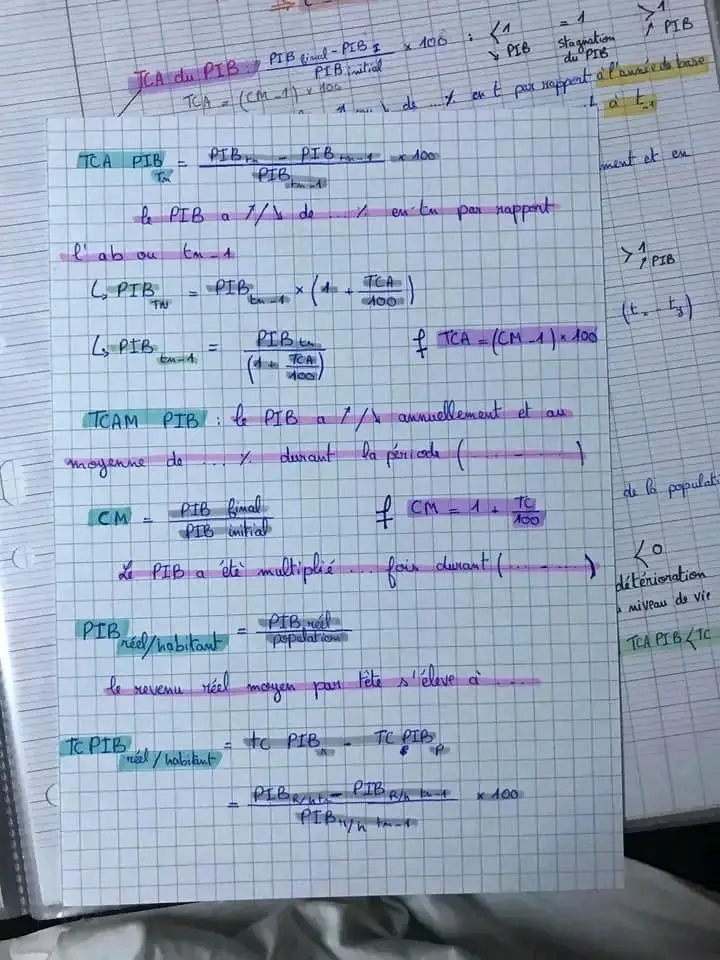 TCA du PIB : PIB final - PIB I / PIB initial × 100 : <1 ↘ PIB = 1 stagnation du PIB >1 ↗ PIB
TCA = (CM - 1) × 100
de ...% en t par rapport à l'année de base
à t-1
TCA PIB Tn = PIB tn - PIB tn-1 / PIB tn-1 × 100
le PIB a ↗/↘ de ... % en tn par rapport
l'ab ou tn-1
↳ PIB TN = PIB tn-1 × (1 + TCA/100)
↳ PIB tn-1 = PIB tn / (1 + TCA/100) f TCA = (CM - 1) × 100
TCAM PIB : le PIB a ↗/↘ annuellement et au
moyenne de ... % durant la période (... - ...)
CM = PIB final / PIB initial f CM = 1 + TC/100
Le PIB a été multiplié ... fois durant (... - ...)
PIB réel/habitant = PIB réel / population
le revenu réel moyen par tête s'élève à ....
TC PIB réel/habitant = tc PIB - TC P
= PIB R/h tn - PIB R/h tn-1 / PIB r/h tn-1 × 100
ment et en
>1 ↗ PIB
de la populati
<0
détérioration
niveau de vie
TCA PIB < TC